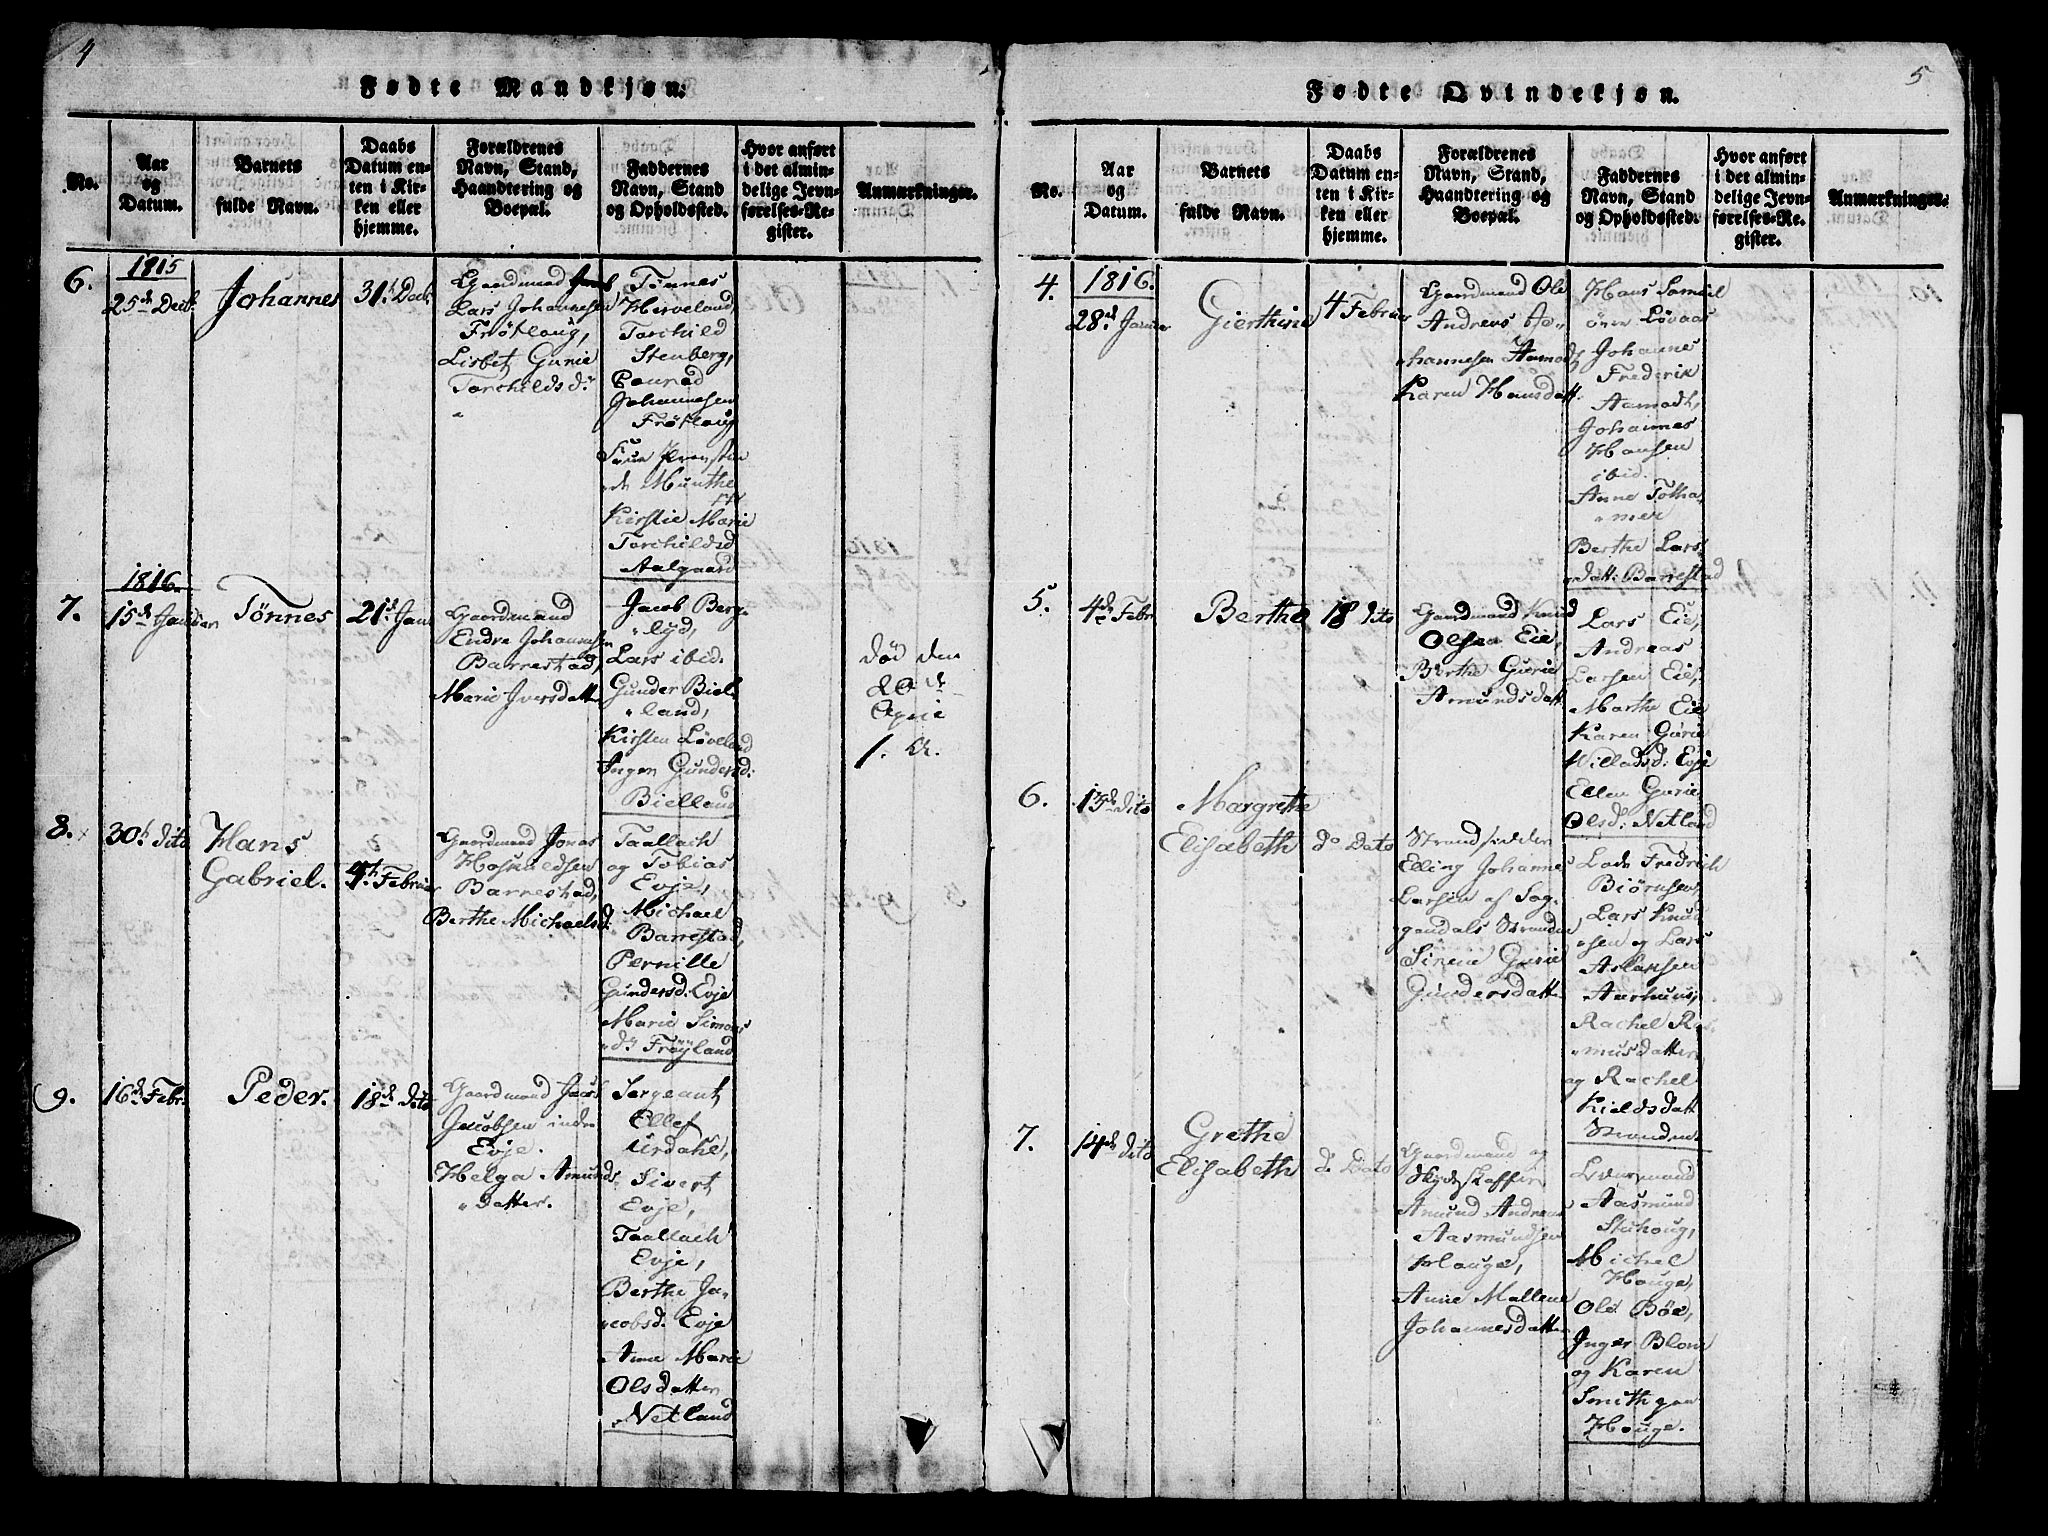 4
Fødte Mandkjøn.
No.
Aar
og
Datum.
Barnets
fulde Navn.
Daabs
Datum en-
ten i Kir-
ken eller
hjemme.
Forældrenes
Navn, Stand,
Haandtering og
Boepæl.
Faddernes
Navn, Stand
og Opholdssted.
Hvor anført
i det almin-
delige Jevn-
førelses-Re-
gister.
Anmærkninger.
6.
1815
25de Decbr
Johannes
31te Decb.
Gaardmand
Lars Johannesen
Frøtloug,
Lisbet Gurie
Torchildsdr
Tønnes
Herveland,
Torchild
Stenberg,
Conrad
Johannesen
Frøtloug
de Munthe
Kirstie Marie
Torchildsd
Aalgaard
7.
1816.
15de Januar
Tønnes
21de Janu
Gaardmand
Endre Johannesen
Barrestad,
Marie Iversdatt
Jacob Berg-
lyd,
Lars ibid.
Gunder Biel-
land,
Kirsten Løveland
Ingen Gundersd:
Bielland
død den
20de
April
8.
30te dito
Hans
Gabriel.
4th Februar
Gaardmand Jonas
Barrestad,
Berthe Michaelsd.
Taallach
og Tobias
Evje,
Michael
Barrestad,
Pernille
Gundersd: Evje
Marie Simons
dr Frøyland
9.
16de Febr.
Peder.
18de dito
Gaardmand
Jacobsen indre
Evje.
Helga Amunds
datter.
Sergeant
Ellef
Urdahl,
Sivert
Evje,
Taallach
Evje,
Berthe Ja-
cobsd. Evje
Anne Marie
Olsdatter
Netland
5
Fødte Qvindekjøn.
No.
Aar
og
Datum.
Barnets
fulde Navn.
Daabs
Datum en-
ten i Kir-
ken eller
hjemme.
Forældrenes
Navn, Stand,
Haandtering og
Boepæl.
Faddernes
Navn, Stand
og Opholdssted.
Hvor anført
i det almin-
delige Jevn-
førelses-Re-
gister.
Anmærkninger.
4.
1816.
28de Januar
Gierthine
4 Februar
Gaardmand Ole
Andreas Jo-
hannesen Aamodt,
Karen Hansdatt.
Hans Samuel
Løvaas
Johannes
Frederik
Aamodt,
Johannes
Hansen
ibid.
Anne Totha-
mer
Berthe Lars
datt: Barrestad
5.
4de Febr
Berthe
18 dito
Gaardmand Knud
Olsen Eie,
Berthe Gurie
Amundsdatt
Lars Eie,
Andreas
Larsen Eie,
Marthe Eie
Karen Gurie
Willadsd: Evje
Ellen Gurie
Olsd: Netland
6.
13de dito
Margrethe
Elisabeth
do Dato
Strandsidder
Elling Johannes
Larsen af Sog-
gendals Stranden
Sirene Gurie
Gundersdatter
Lods Fredrich
Biørnsen,
Lars Knud
sen og Lars
Aslaksen
Aarhuus,
Rachel Ras-
musdatter
og Rachel
Kieldsdatt
Stranden
7.
14de dito
Grethe
Elisabeth
do Dato
Gaardmand og
Skydsskaffer
Amund Andreas
Aasmundsen
Houge,
Anne Mallene
Johannesdatter
Lensmand
Aasmund
Stuhoug,
Michel
Houge,
Ole Bøe,
Inger Blom
og Karen
Smith paa
Houge.